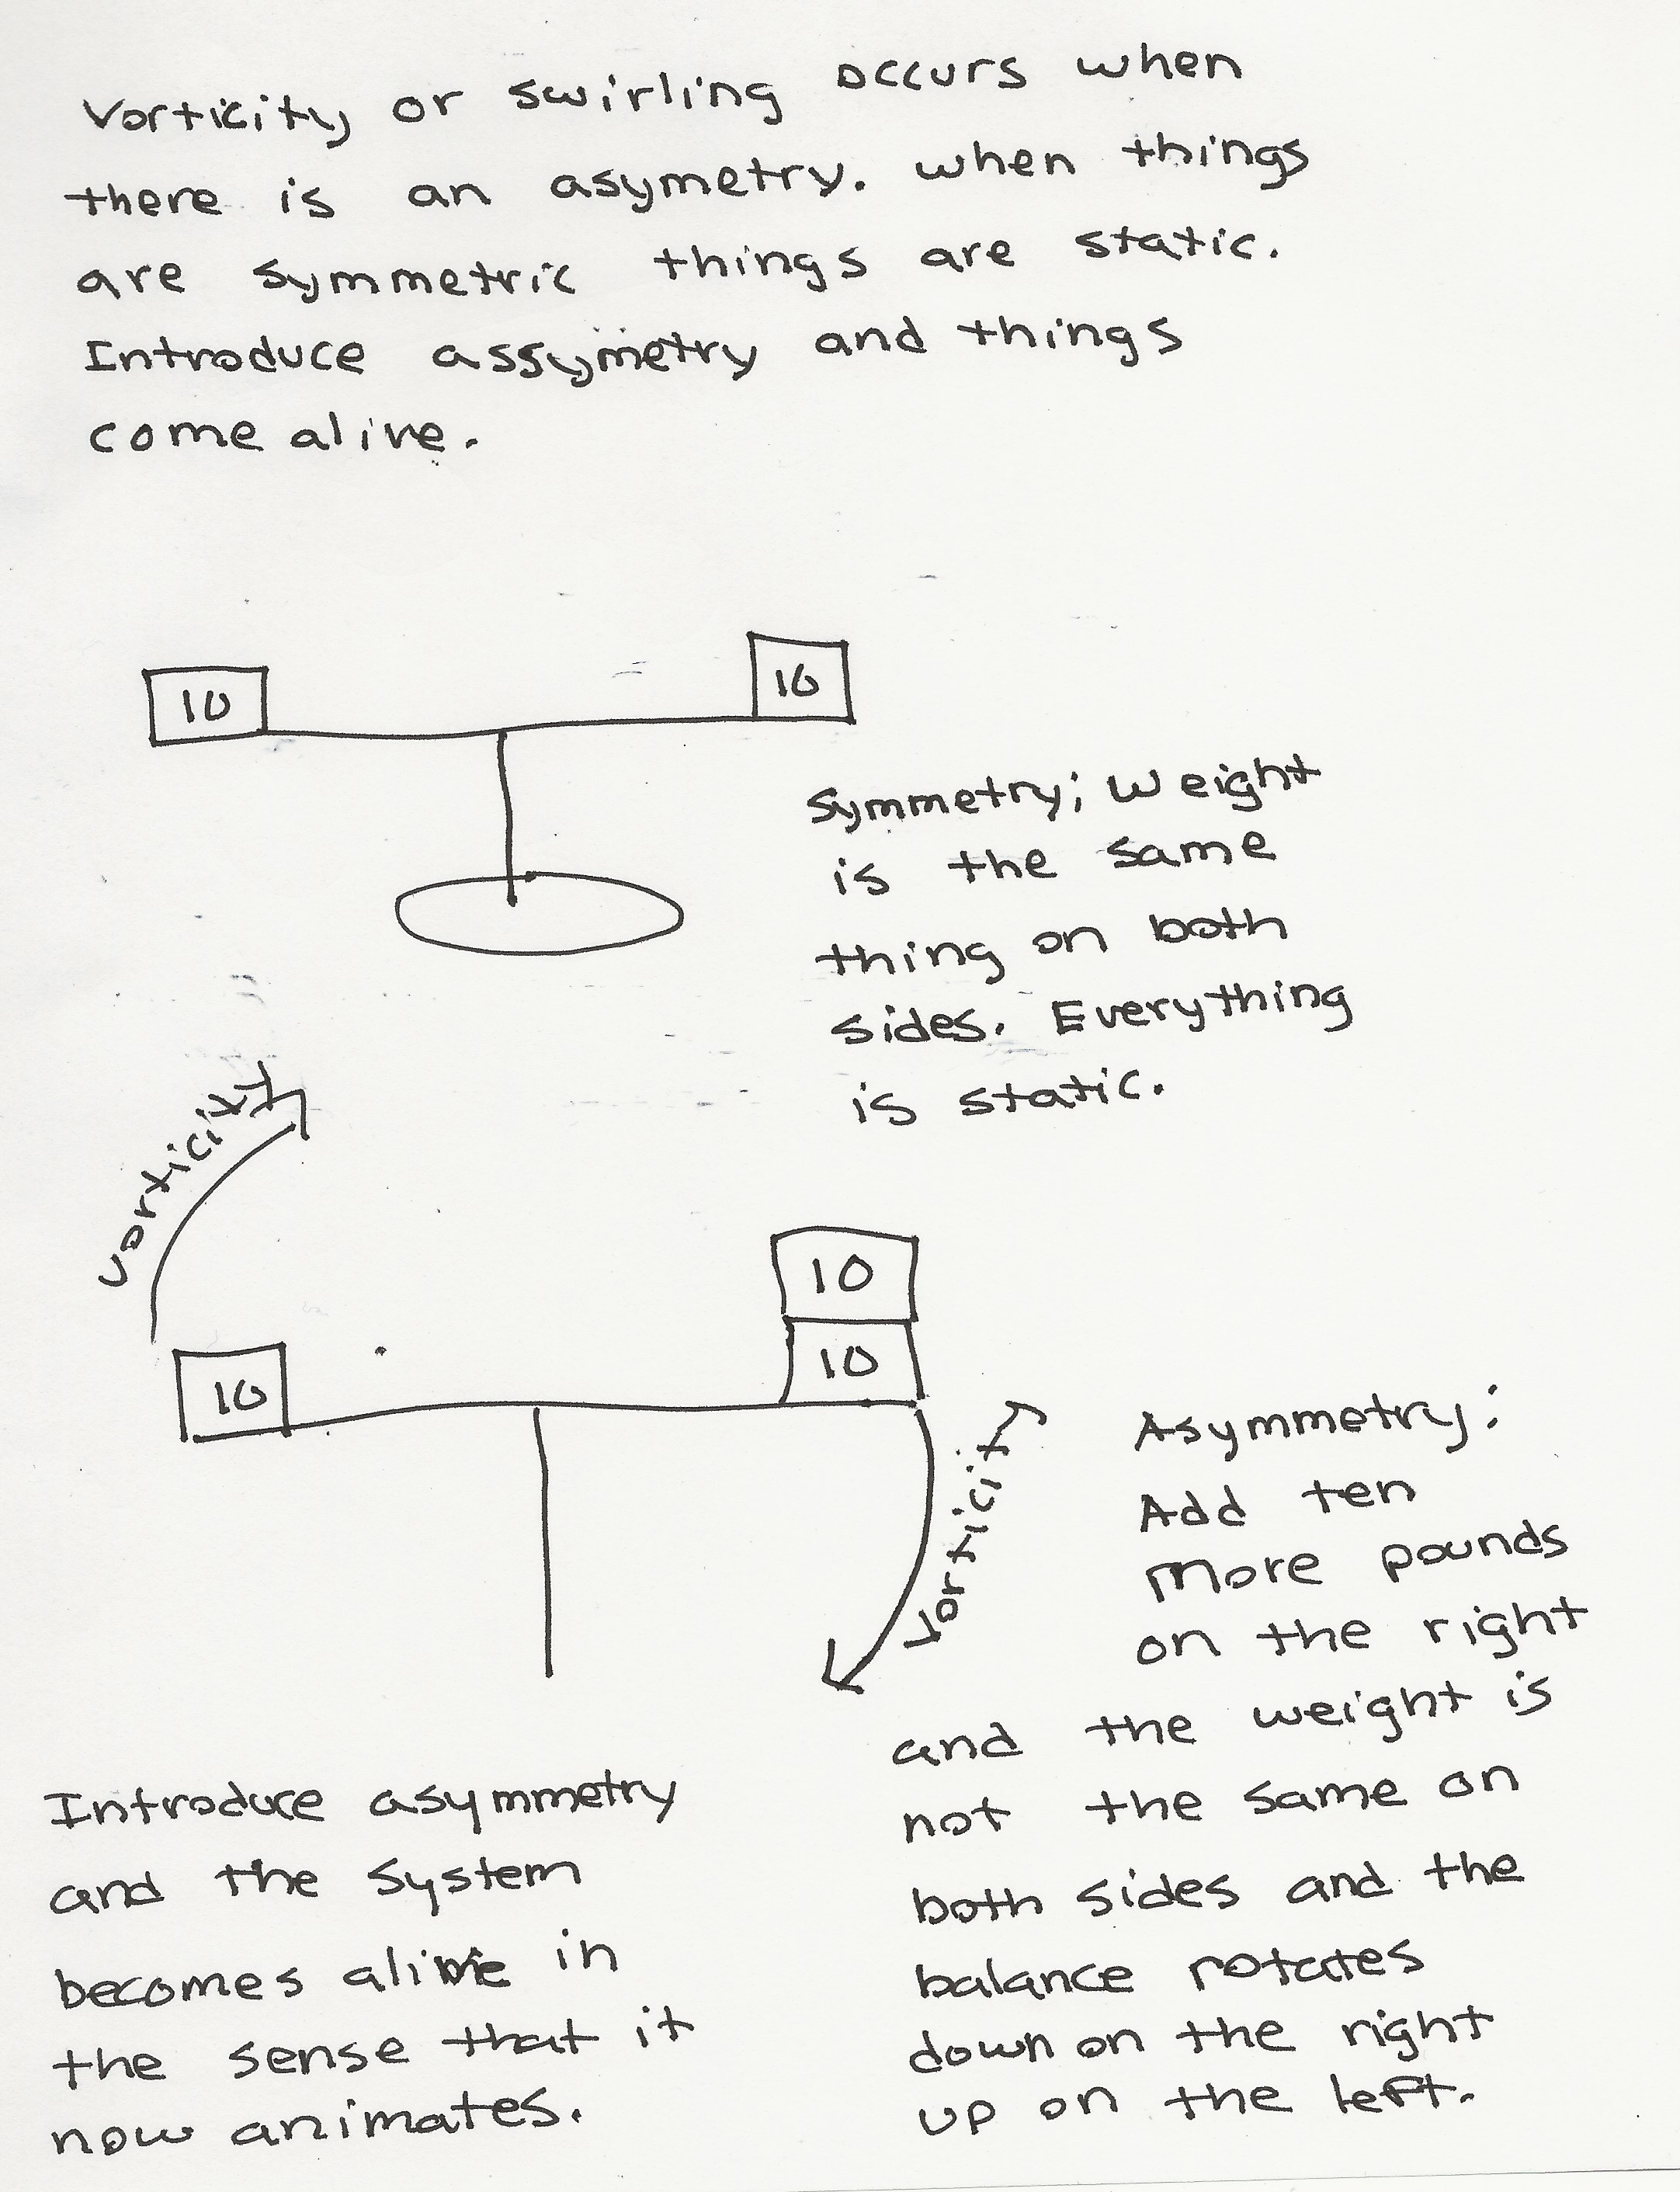 Vorticity or swirling occurs when
there is an asymetry. when things
are symmetric things are static.
Introduce assymetry and things
come alive.
10
10
Symmetry; Weight
is the same
thing on both
sides. Everything
is static.
vorticity
10
10
10
vorticity
Asymmetry:
Add ten
more pounds
on the right
and the weight is
not the same on
both sides and the
balance rotates
down on the right
up on the left.
Introduce asymmetry
and the system
becomes alive in
the sense that it
now animates.